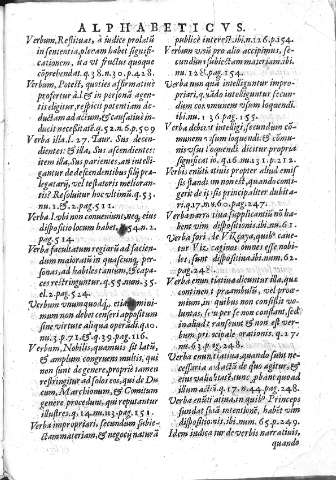 ALPHABETICVS.
Verbum, Restituas, à iudice prolatū
in sententia, plenam habet signifi-
cationem, ita vt fructus quoque
cōprehendat. q.38.n.30.p.428.
Verbum, Potest, quoties affirmatiuè
profertur à l. & in personā agen-
tis dirigitur, respicit potentiam de-
ductam ad actum, & causatiuè in-
ducit necessitatē. q.52.n.6.p.509
Verba illa l. 27. Taur. Sus decen-
dientes: & illa, Sus ascendientes:
item illa, Sus parientes, an intelli-
gantur de descendentibus filij præ-
legatarij, vel testatoris melioram-
tis? Resoluitur hoc vltimū. q.53.
nu.1.&.2.pag.511.
Verba l. vbi non conueniunt, neq, eius
dispositio locum habet. 54.n.2.
pag.514.
Verba facultatum regiarū ad facien-
dum maioratū in quascunq, per-
sonas, ad habiles tantum, & capa-
ces restringuntur. q.55.num.35.
et.2.pag.524.
Verbum vnum quodq, etiā mini-
mum non debet censeri appositum
sine virtute aliqua operādi. q.10.
nu.3.p.71.& q.39.pag.116.
Verbum, Nobilis, quamuis sit latū,
& amplum congruens multis, qui
non sunt de genere, propriè tamen
restringitur ad solos eos, qui de Du-
cum, Marchionum, & Comitum
genere procedunt, qui reputantur
illustres. q.14.nu.13.pag.151.
Verba impropriari, secundum subie-
ctam materiam, & negocij naturā
publicè interest. ibi.n.126.p.154.
Verbum vnū pro alio accipimus, se-
cundum subiectam materiam. ibi.
nu.128.pag.154.
Verba non quā intelliguntur impro-
priari, quādo intelliguntur secun-
dum communem vsum loquendi.
ibi nu.136.pag.155.
Verba debēt intelligi, secundum cō-
munem vsum loquendi: & commu-
nis vsus loquendi dicitur propria
significatio. q.16.nu.131.p.212.
Verbis enūtiatiuis propter aliud emis-
sis standum non est, quando contin-
gerit de ijs principaliter dubita-
ri. q.17.n.60.pag.247.
Verba narratiua supplicantis nō ha-
bent vim dispositionis. ibi nu.61.
Verba fori. de Vizcaya, quibus caue-
tur Viz. caginos omnes esse nobi-
les, sunt dispositiua. ibi nu.62.
pag.248.
Verba enuntiatiua dicuntur illa, quæ
continent præambulū, vel proœ-
mium, in quibus non consistit vo-
luntas, super se non constant, sed
in alijs de ranturs: & non est ver-
bum, principale orationis. q.17.
nu.63.pag.248.
Verba enuntiatiua, quando sunt ne-
cessaria ad actū de quo agitur, &
eius validitatē, tunc probant quoad
illum actū. q.17.n.64.pag.248.
Verba enūtiatiua, in quibus Princeps
fundat suam intentionē, habēt vim
dispositionis. ibi num.65.pag.249.
Idem iudicatur de verbis narratiuis,
quando